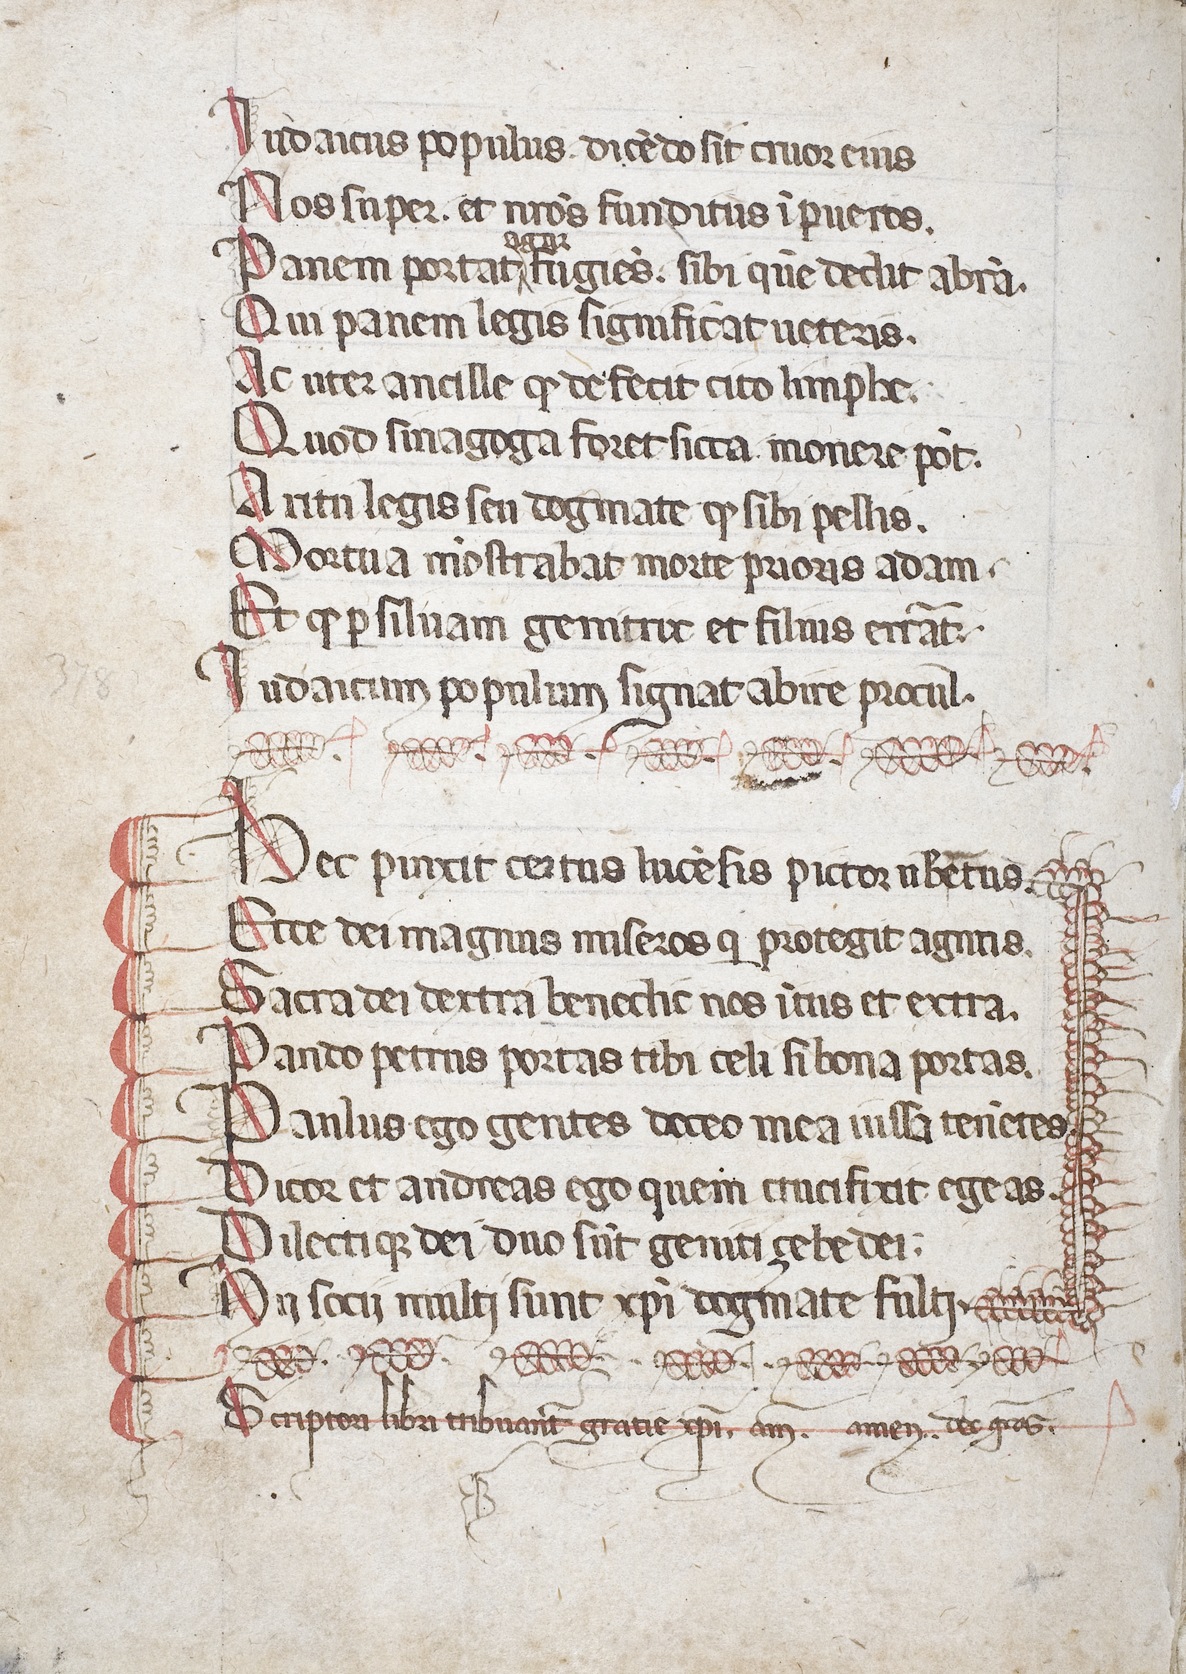 Iudaicus populus. dicēdo sit cruor eius
Nos super. et nr̄os funditus ī pueros.
agar
Panem portat fugiēs. sibi quē dedit abrā.
Qui panem legis significat ueteris.
Ac uter ancille qͥ defecit cito limphe.
Quod sinagoga foret sicca monere pōt.
A ritu legis seu dogmate qͥ sibi pellis.
Mortua mōstrabat morte prioris adam.
Et qͥ ꝑ siluam genitrix et filius errāt.
Iudaicum populum signat abire procul.
Hec pinxit certus lucēsis pictor ubertus.
Ecce dei magnus miseros q protegit agnus.
Sacra dei dextra benedic nos ītus et extra.
Pando petrus portas tibi celi si bona portas.
Paulus ego gentes doceo mea iussa tenētes
Dicor et andreas ego quem crucifixit egeas.
Dilectiqꝫ dei duo sūt geniti zebedei.
Hij socij multi sunt xp̄i dogmate fulti
Scriptori libri tribuant̄ gratie xp̄i. am̄. amen. deo gr̄as.